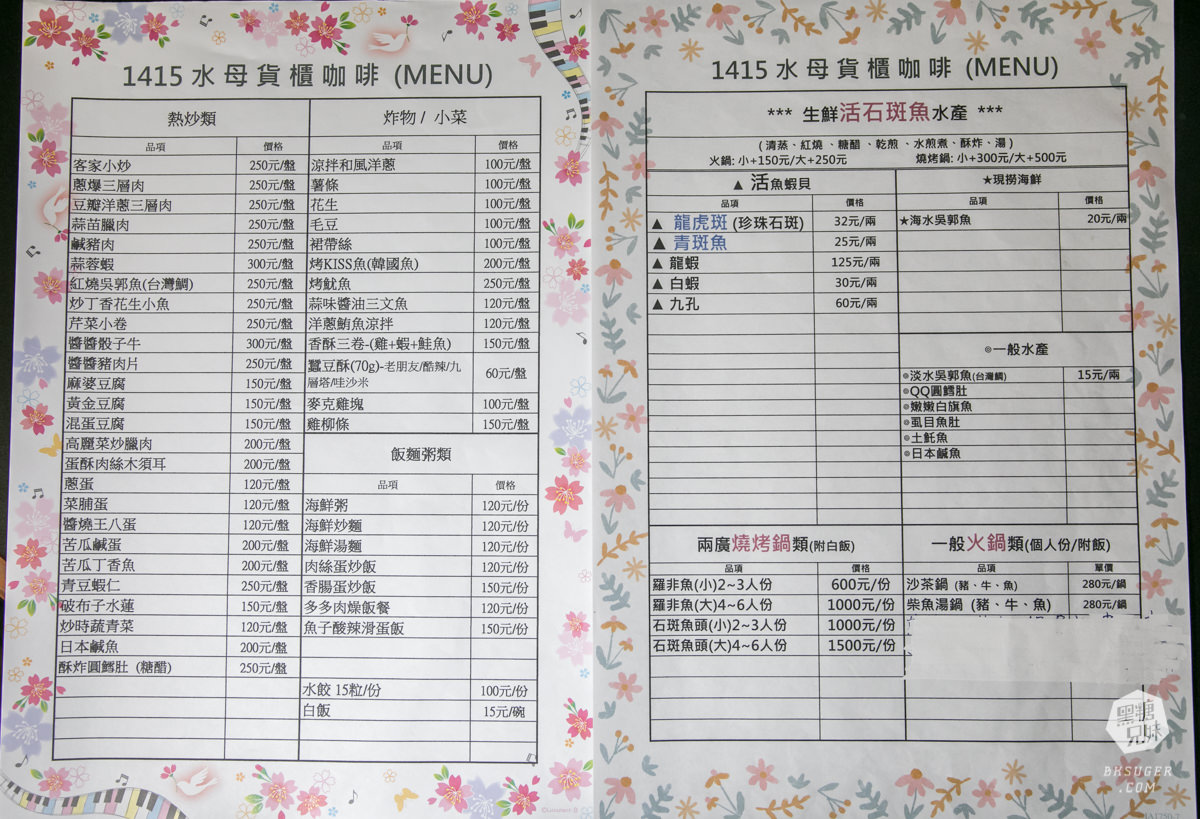 1415水母貨櫃咖啡 (MENU)
熱炒類
品項 價格
客家小炒 250元/盤
蔥爆三層肉 250元/盤
豆瓣洋蔥三層肉 250元/盤
蒜苗臘肉 250元/盤
鹹豬肉 250元/盤
蒜蓉蝦 300元/盤
紅燒吳郭魚(台灣鯛) 250元/盤
炒丁香花生小魚 250元/盤
芹菜小卷 250元/盤
醬醬骰子牛 300元/盤
醬醬豬肉片 250元/盤
麻婆豆腐 150元/盤
黃金豆腐 150元/盤
混蛋豆腐 150元/盤
高麗菜炒臘肉 200元/盤
蛋酥肉絲木須耳 200元/盤
蔥蛋 120元/盤
菜脯蛋 120元/盤
醬燒王八蛋 120元/盤
苦瓜鹹蛋 200元/盤
苦瓜丁香魚 200元/盤
青豆蝦仁 250元/盤
破布子水蓮 150元/盤
炒時蔬青菜 120元/盤
日本鹹魚 200元/盤
酥炸圓鱈肚 (糖醋) 250元/盤
炸物 / 小菜
品項 價格
涼拌和風洋蔥 100元/盤
薯條 100元/盤
花生 100元/盤
毛豆 100元/盤
裙帶絲 100元/盤
烤KISS魚(韓國魚) 200元/盤
烤魷魚 250元/盤
蒜味醬油三文魚 120元/盤
洋蔥鮪魚涼拌 120元/盤
香酥三卷-(雞+蝦+鮭魚) 150元/盤
蠶豆酥(70g)-老朋友/酷辣/九
層塔/哇沙米 60元/盤
麥克雞塊 100元/盤
雞柳條 150元/盤
飯麵粥類
品項 價格
海鮮粥 120元/份
海鮮炒麵 120元/份
海鮮湯麵 120元/份
肉絲蛋炒飯 120元/份
香腸蛋炒飯 150元/份
多多肉燥飯餐 120元/份
魚子酸辣滑蛋飯 150元/份
水餃 15粒/份 100元/份
白飯 15元/碗
1415水母貨櫃咖啡 (MENU)
*** 生鮮活石斑魚水產 ***
(清蒸、紅燒、糖醋、乾煎、水煎煮、酥炸、湯)
火鍋: 小+150元/大+250元 燒烤鍋: 小+300元/大+500元
▲ 活魚蝦貝
品項 價格
▲ 龍虎斑 (珍珠石斑) 32元/兩
▲ 青斑魚 25元/兩
▲ 龍蝦 125元/兩
▲ 白蝦 30元/兩
▲ 九孔 60元/兩
★現撈海鮮
品項 價格
★海水吳郭魚 20元/兩
◎一般水產
◎淡水吳郭魚(台灣鯛) 15元/兩
◎QQ圓鱈肚
◎嫩嫩白旗魚
◎虱目魚肚
◎土魠魚
◎日本鹹魚
兩廣燒烤鍋類(附白飯)
品項 價格
羅非魚(小)2~3人份 600元/份
羅非魚(大)4~6人份 1000元/份
石斑魚頭(小)2~3人份 1000元/份
石斑魚頭(大)4~6人份 1500元/份
一般火鍋類(個人份/附飯)
品項 單價
沙茶鍋 (豬、牛、魚) 280元/鍋
柴魚湯鍋 (豬、牛、魚) 280元/鍋
黑糖兄妹
BKSUGER
.COM